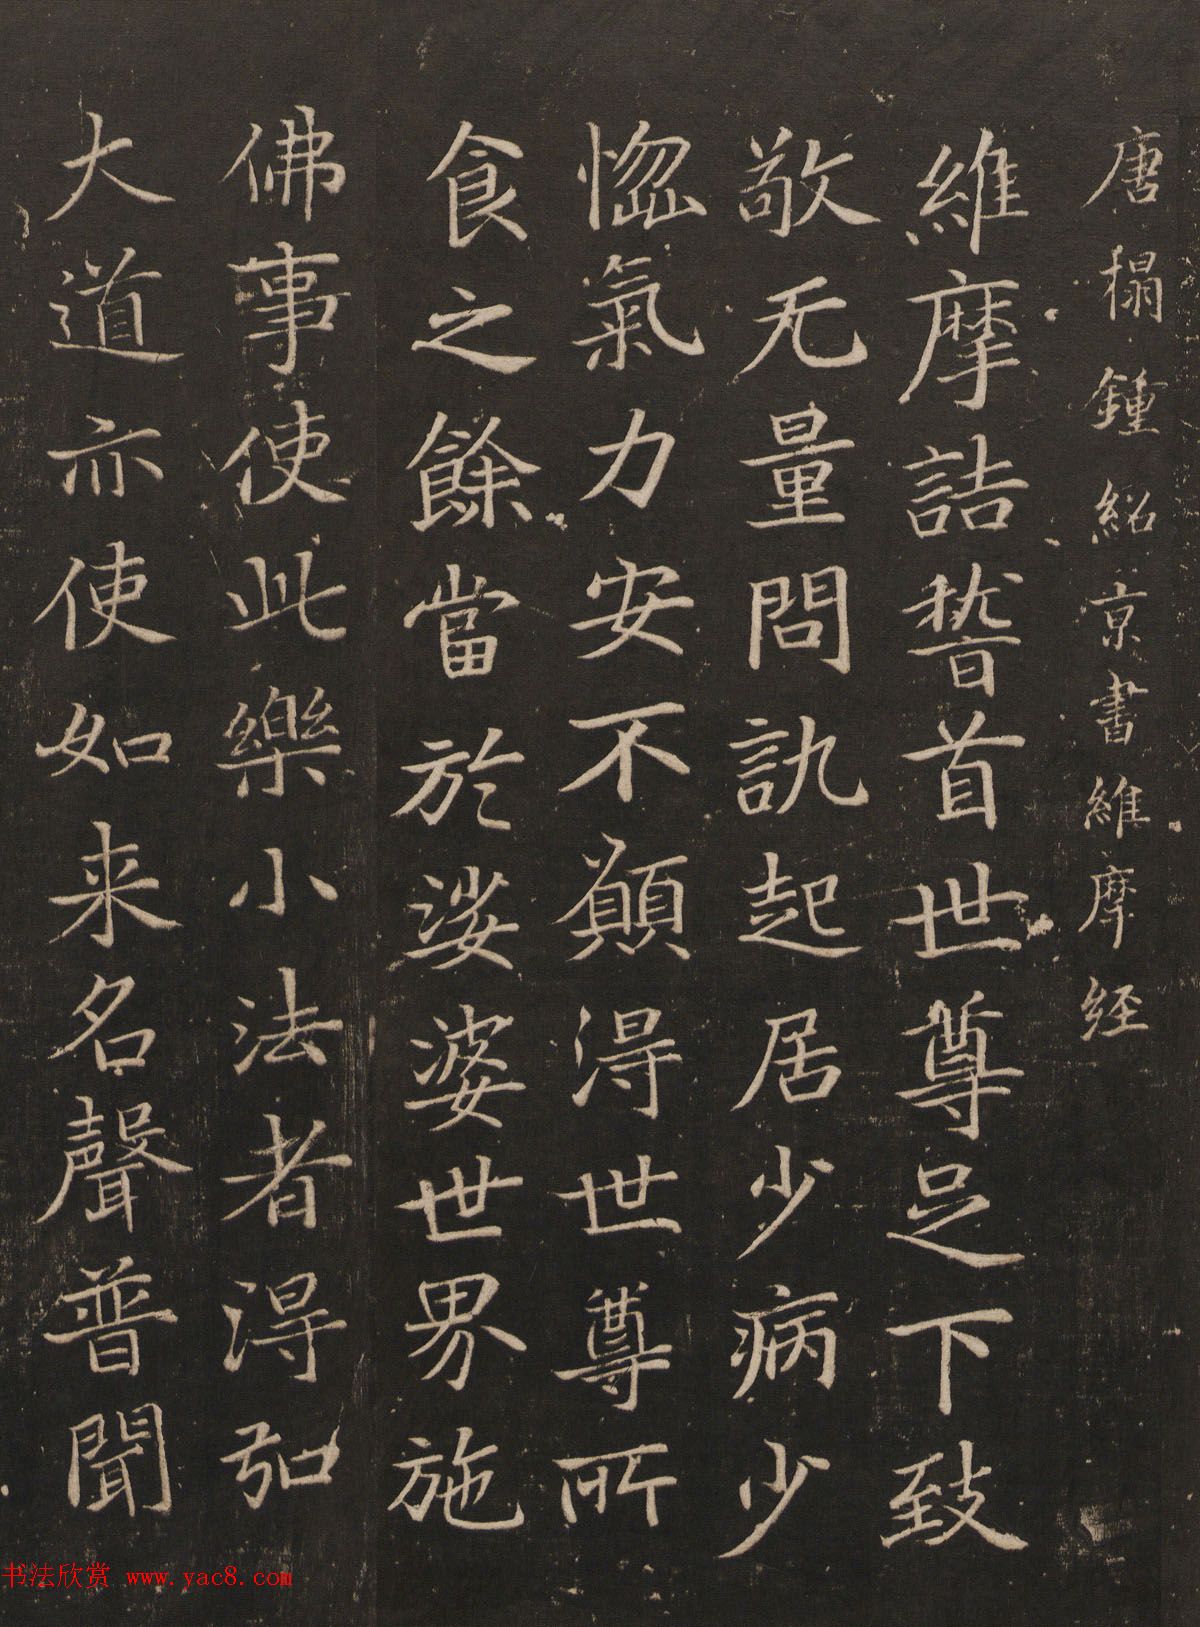 唐榻鍾紹京書維摩経
維摩詰稽首世尊足下致
敬无量問訊起居少病少
惱氣力安不願得世尊所
食之餘當於娑婆世界施
佛事使此樂小法者得弘
大道亦使如来名聲普聞
书法欣赏 www.yac8.com